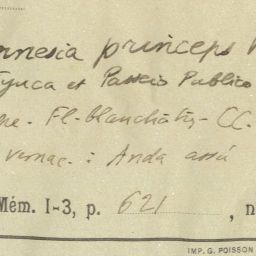 nnesia princeps
Tijuca et Passeio Publico
Fl. blanchâtres - CC.
vernac. : Anda assú
Mém. I-3, p. 621 , n
IMP. G. POISSON